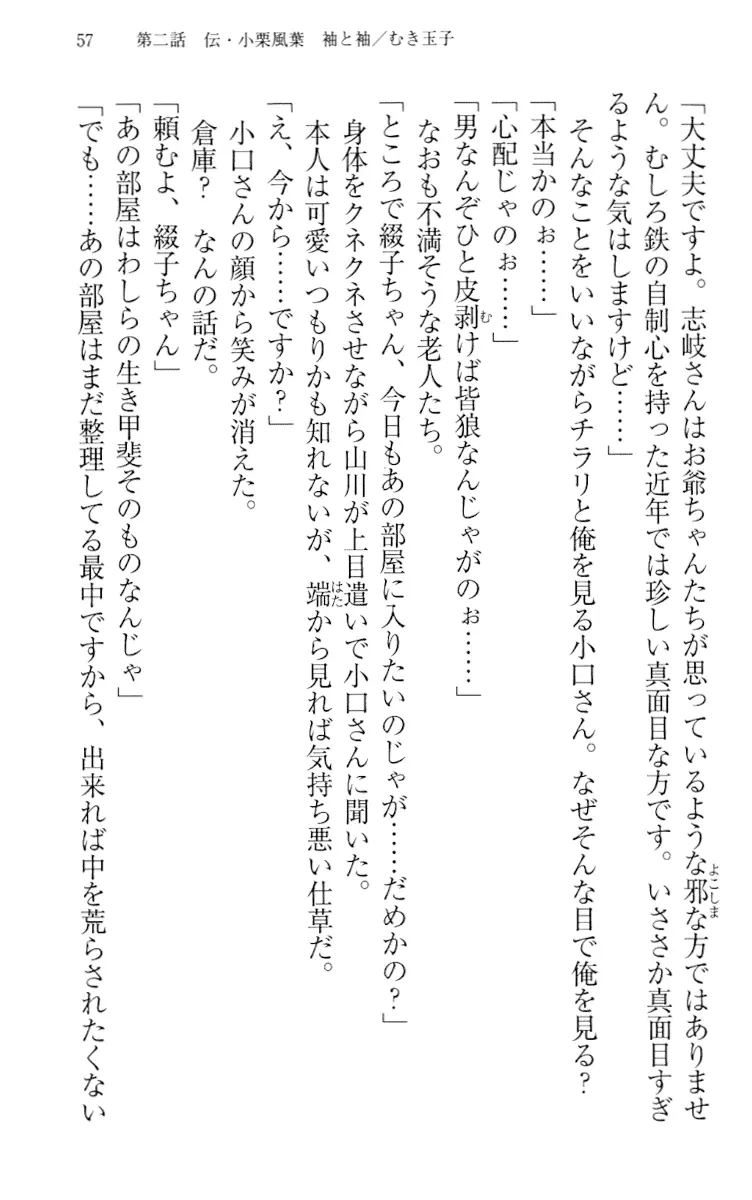 57　第二話　伝・小栗風葉　袖と袖／むき玉子
「大丈夫ですよ。志岐さんはお爺ちゃんたちが思っているような邪な方ではありませ
ん。むしろ鉄の自制心を持った近年では珍しい真面目な方です。いささか真面目すぎ
るような気はしますけど……」
そんなことをいいながらチラリと俺を見る小口さん。なぜそんな目で俺を見る？
「本当かのぉ……」
「心配じゃのぉ……」
「男なんぞひと皮剥けば皆狼なんじゃがのぉ……」
なおも不満そうな老人たち。
「ところで綴子ちゃん、今日もあの部屋に入りたいのじゃが……だめかの？」
身体をクネクネさせながら山川が上目遣いで小口さんに聞いた。
本人は可愛いつもりかも知れないが、端から見れば気持ち悪い仕草だ。
「え、今から……ですか？」
小口さんの顔から笑みが消えた。
倉庫？　なんの話だ。
「頼むよ、綴子ちゃん」
「あの部屋はわしらの生き甲斐そのものなんじゃ」
「でも……あの部屋はまだ整理してる最中ですから、出来れば中を荒らされたくない